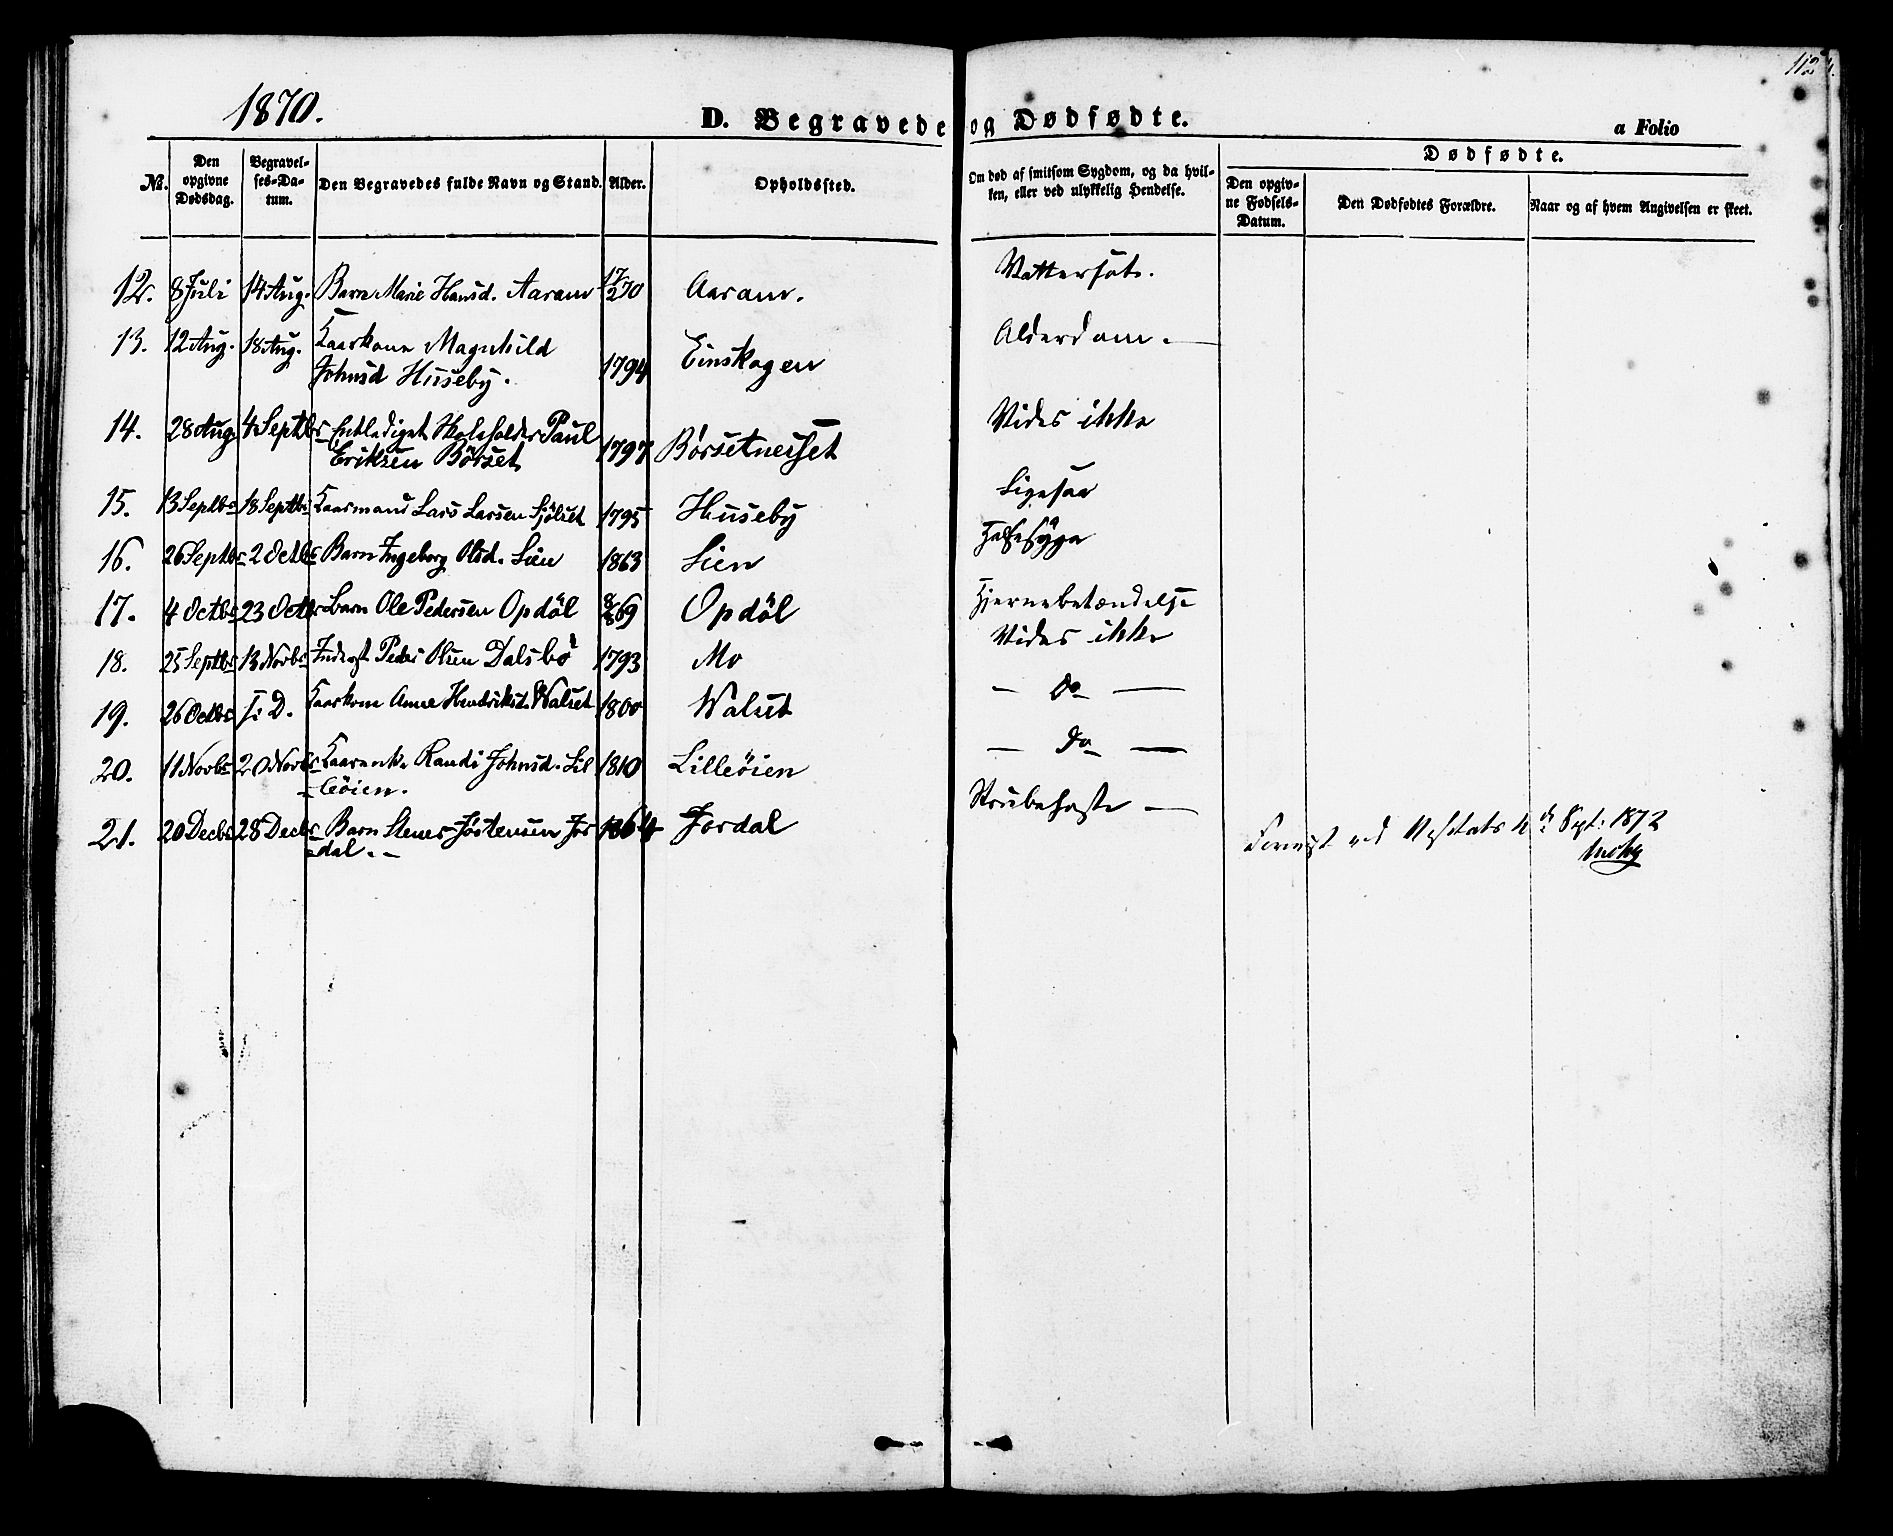 112
1870.
D. Begravede og Dødfødte.
a Folio
No.
Den opgivne Dødsdag.
Begravelses-Datum.
Den Begravedes fulde Navn og Stand.
Alder.
Opholdssted.
Om død af smitsom Sygdom, og da hvilken, eller ved ulykkelig Hendelse.
Dødfødte.
Den opgivne Fødsels-Datum.
Den Dødfødtes Forældre.
Naar og af hvem Angivelsen er skeet.
12. 8 Juli 14 Aug. Barn Marie Hansd. Aaram 17/2 70 Aaram. Vattersot.
13. 12 Aug. 18 Aug. Kaarkone Magnhild
Johnsd Huseby. 1794 Einskagen Alderdom.
14. 28 Aug. 4 Septbr Entlediget Skoleholder Paul
Eriksen Börset 1797 Börsetnesset Vides ikke
15. 13 Septbr 18 Septbr Kaarmand Lars Larsen Sjölset 1795 Huseby Ligesaa
16. 26 Septbr 2 Octbr Barn Ingeborg Olsd. Lien 1863 Lien Halssyge
17. 4 Octbr 23 Octbr Barn Ole Pedersen Opdöl 69 Opdöl Hjernebetændelse
18. 25 Septbr 13 Novbr Inderst Peder Olsen Dalsbö 1793 Mo Vides ikke
19. 26 Octbr s: D. Kaarkone Anne Hendriksd. Walset 1800 Walset — Do —
20. 11 Novbr 20 Novbr Kaarenke Randi Johnsd. Lil
leöien. 1810 Lilleöien — Do —
21. 20 Decbr 28 Decbr Barn Stener Jöstensen Jor
dal. — 1864 Jordal Strubehoste —
ved Sept: 1872